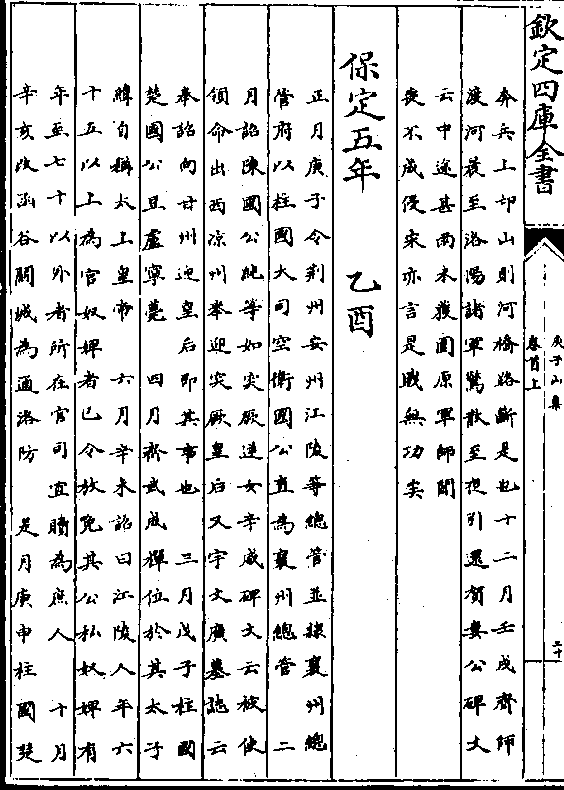 欽定四庫全書
庾子山集
卷首上
二十
奔兵上邙山則河橋路斷是也十二月壬戌齊師
渡河晨至洛陽諸軍驚散至夜引還賀婁公碑文
云中途甚雨未獲圍原軍師聞
喪不成侵宋亦言是戰無功矣
保定五年 乙酉
正月庚子令荆州安州江陵等總管並隸襄州總
管府以柱國大司空衛國公直為襄州總管 二
月詔陳國公純等如突厥逆女辛威碑文云被使
領命出西凉州奉迎突厥皇后又宇文廣墓誌云
奉詔向甘州迎皇后即其事也 三月戊子柱國
楚國公豆盧寧薨 四月齊武成禪位於其太子
緯自稱太上皇帝 六月辛未詔曰江陵人年六
十五以上為官奴婢者已令放免其公私奴婢有
年至七十以外者所在官司宜贖為庶人 十月
辛亥改函谷關城為通洛防 是月庚申柱國楚